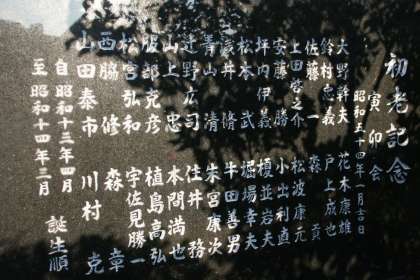 初老記念
寅卯会
昭和五十四年一月吉日
大野幹夫 花木康雄
鈴村忠義 戸上成也
佐藤一 森 貢
上田啓之介 松波康元
安藤勝 小出利直
坪内伊義 榎並岩夫
松本武 堀場幸夫
藤井隆 牛田善男
青山清 朱宮康次
辻野広司 住井務
山上忠 本間満也
服部克彦 植島高弘
松宮弘和 宇佐見勝一
西脇修 森 幸
山田泰市 川村 克
自 昭和十三年四月
至 昭和十四年三月 誕生順